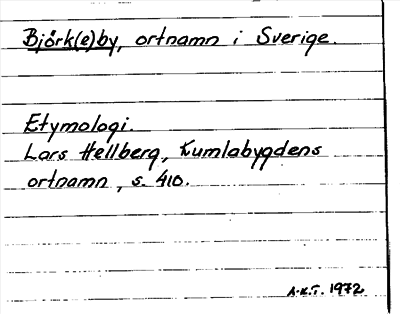 Björk(e)by, ortnamn i Sverige.
Etymologi.
Lars Hellberg, Kumlabygdens
ortnamn, s. 410.
A.K.T. 1972